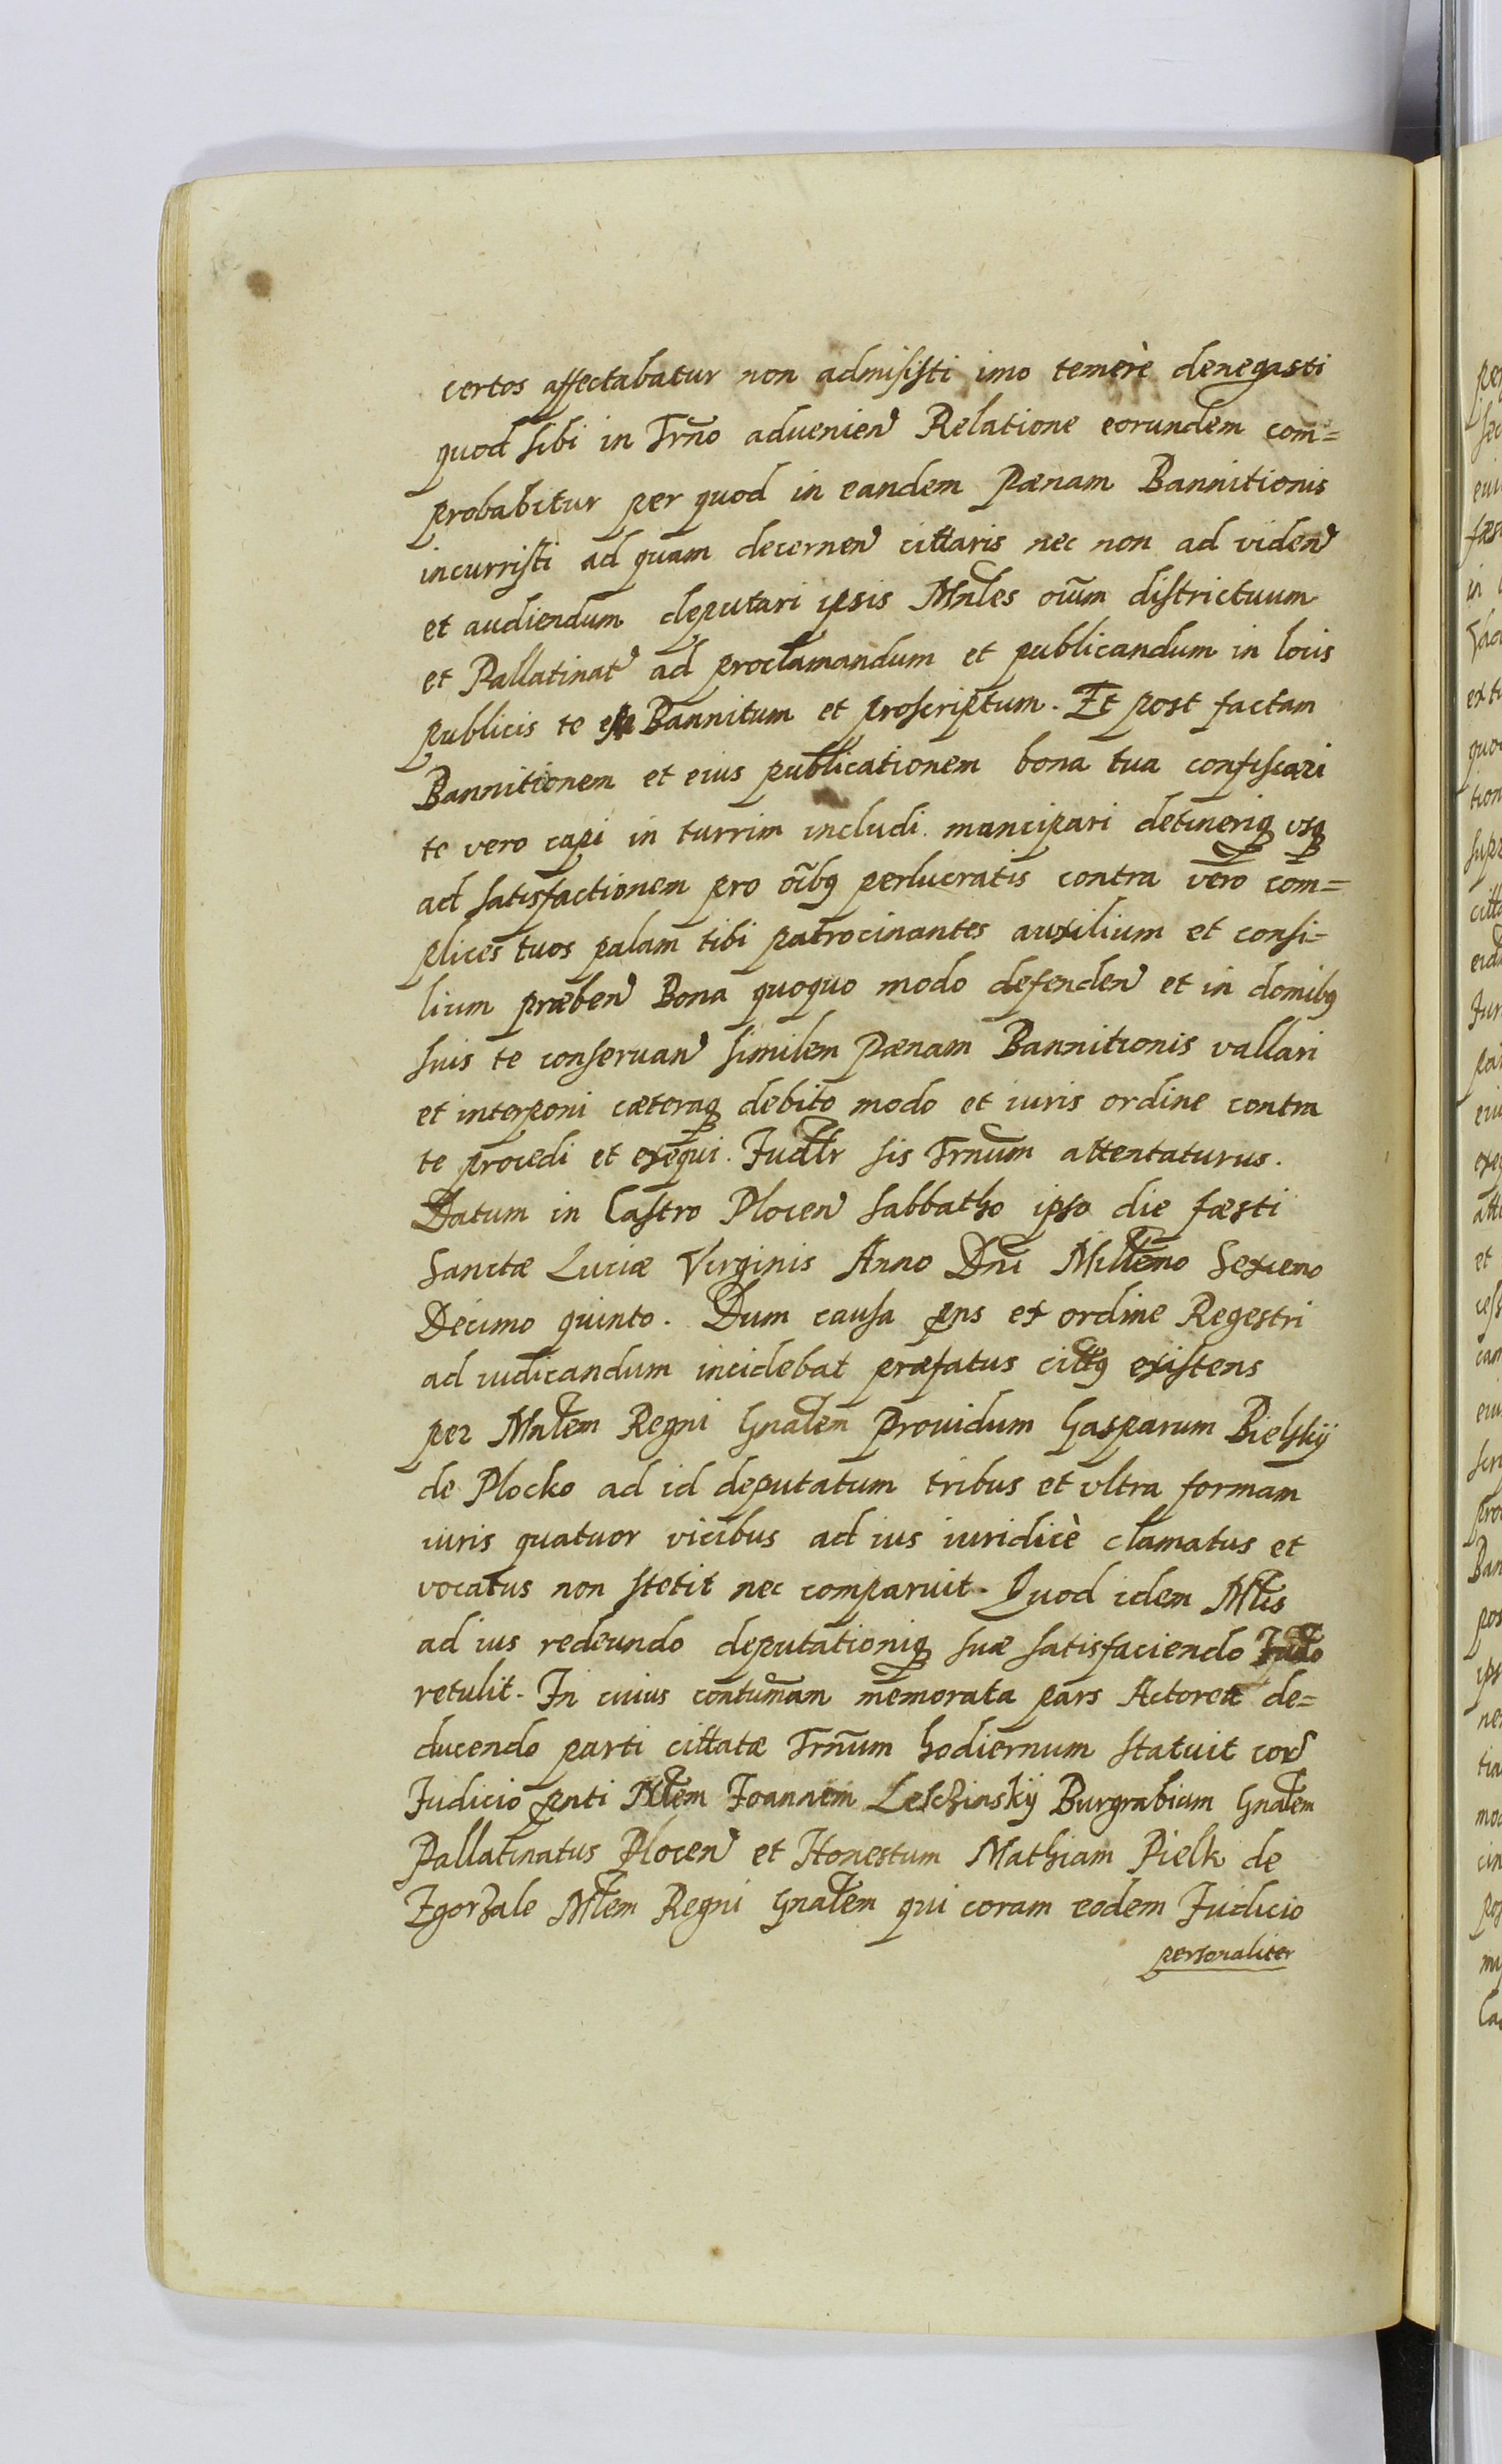 certos affectabatur non admisisti imo temerè denegasti
quod sibi in Trño advenien Relatione eorundem com=
probabitur per quod in eandem Pænam Bannitionis
incurristi ad quam decernen cittaris nec non ad viden
et audiendum deputari ipsis Mñles oium districtuum
et Pallatinat ad proclamandum et publicandum in locis
publicis te Bannitum et proscriptum. Et post factam
Bannitionem et eius publicationem bona tua confiscari
te vero capi in turrim includi mancipari detineriq usq
ad satisfactionem pro oibq perlucratis contra vero com=
plices tuos palam tibi patrocinantes auxilium et consi=
lium præben Bona quoquo modo defenden et in domibq
suis te conservan similem Pænam Bannitionis vallari
et interponi cæteraq debito modo et iuris ordine contra
te procedi et exequi. Judlr sis Trnum attentaturus.
Datum in Castro Plocen sabbatho ipso die fæsti
Sanctæ Luciæ Virginis Anno Dni Millemo Sexcno
Decimo quinto. Dum causa pns ex ordine Regestri
ad iudicandum incidebat præfatus cittq existens
per Mnlem Regni Gnalem Providum Gasparum Bielskÿ
de Plocko ad id deputatum tribus et ultra formam
iuris quatuor vicibus ad ius iuridicè clamatus et
vocatus non stetit nec comparuit. Quod idem Mlis
ad ius redeundo deputationiq suæ satisfaciendo Judo
retulit. In cuius contumam memorata pars Actorea de=
ducendo parti cittatæ Trnum hodiernum statuit cor
Judicio pnti Mlem Joannem Leschinskÿ Burgrabium Gnalem
Pallatinatus Plocen et Honestum Mathiam Pielk de
Zgorzale Mlem Regni Gnalem qui coram eodem Judicio
personaliter